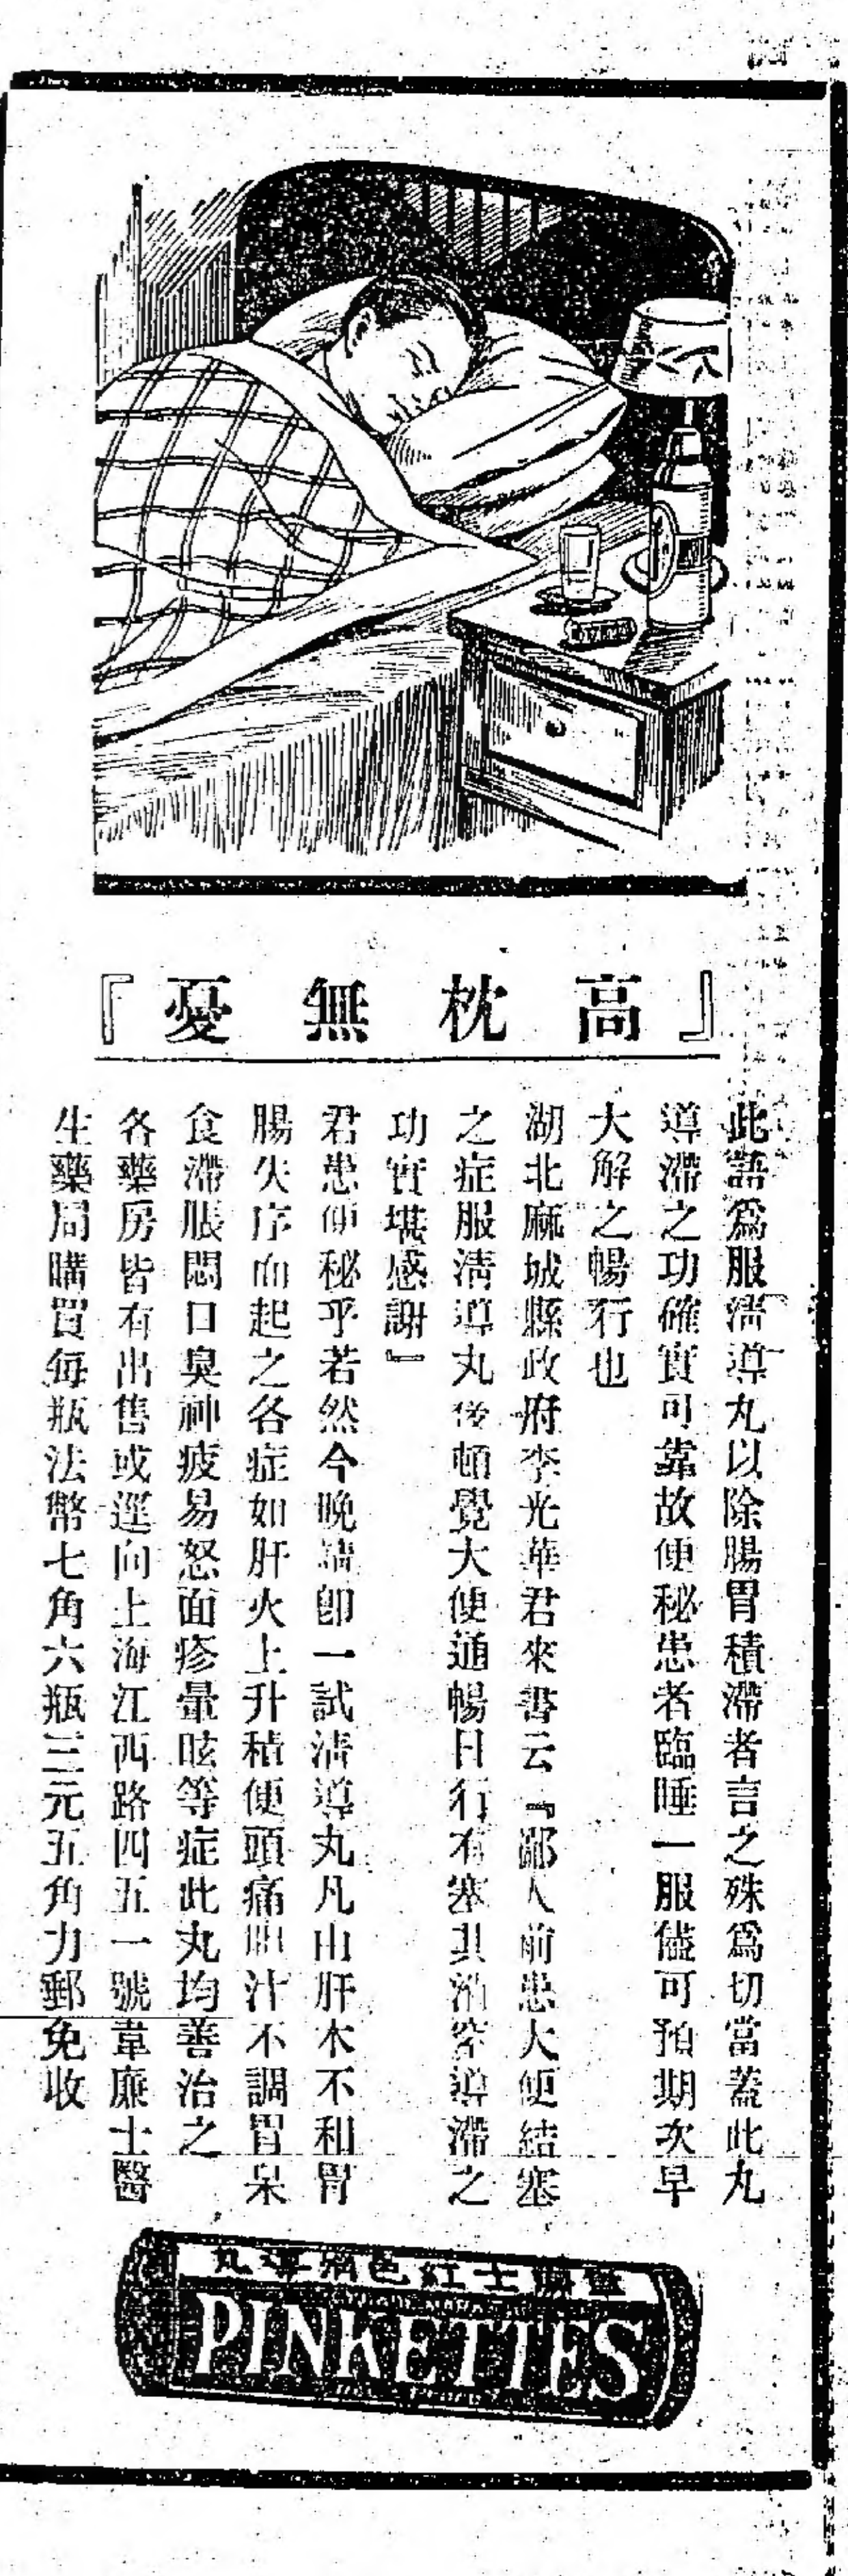 『高枕無憂』
此語爲服淸導丸以除腸胃積滯者言之殊爲切當蓋此丸
導滯之功確實可靠故便秘患者臨睡一服儘可預期次早
大解之暢行也
湖北麻城縣政府李光華君來書云『鄙人前患大便結塞
之症服淸導丸後頓覺大便通暢日行不塞其消導滯之
功實堪感謝』
君患便秘乎若然今晚請卽一試淸導丸凡由肝木不和胃
腸失序而起之各症如肝火上升積便頭痛胆汁不調胃呆
食滯脹悶口臭神疲易怒面疹暈眩等症此丸均善治之
各藥房皆有出售或逕向上海江西路四五一號韋廉士醫
生藥局購買每瓶法幣七角六瓶三元五角力郵免收
丸導淸色紅士廉韋
PINKETTES